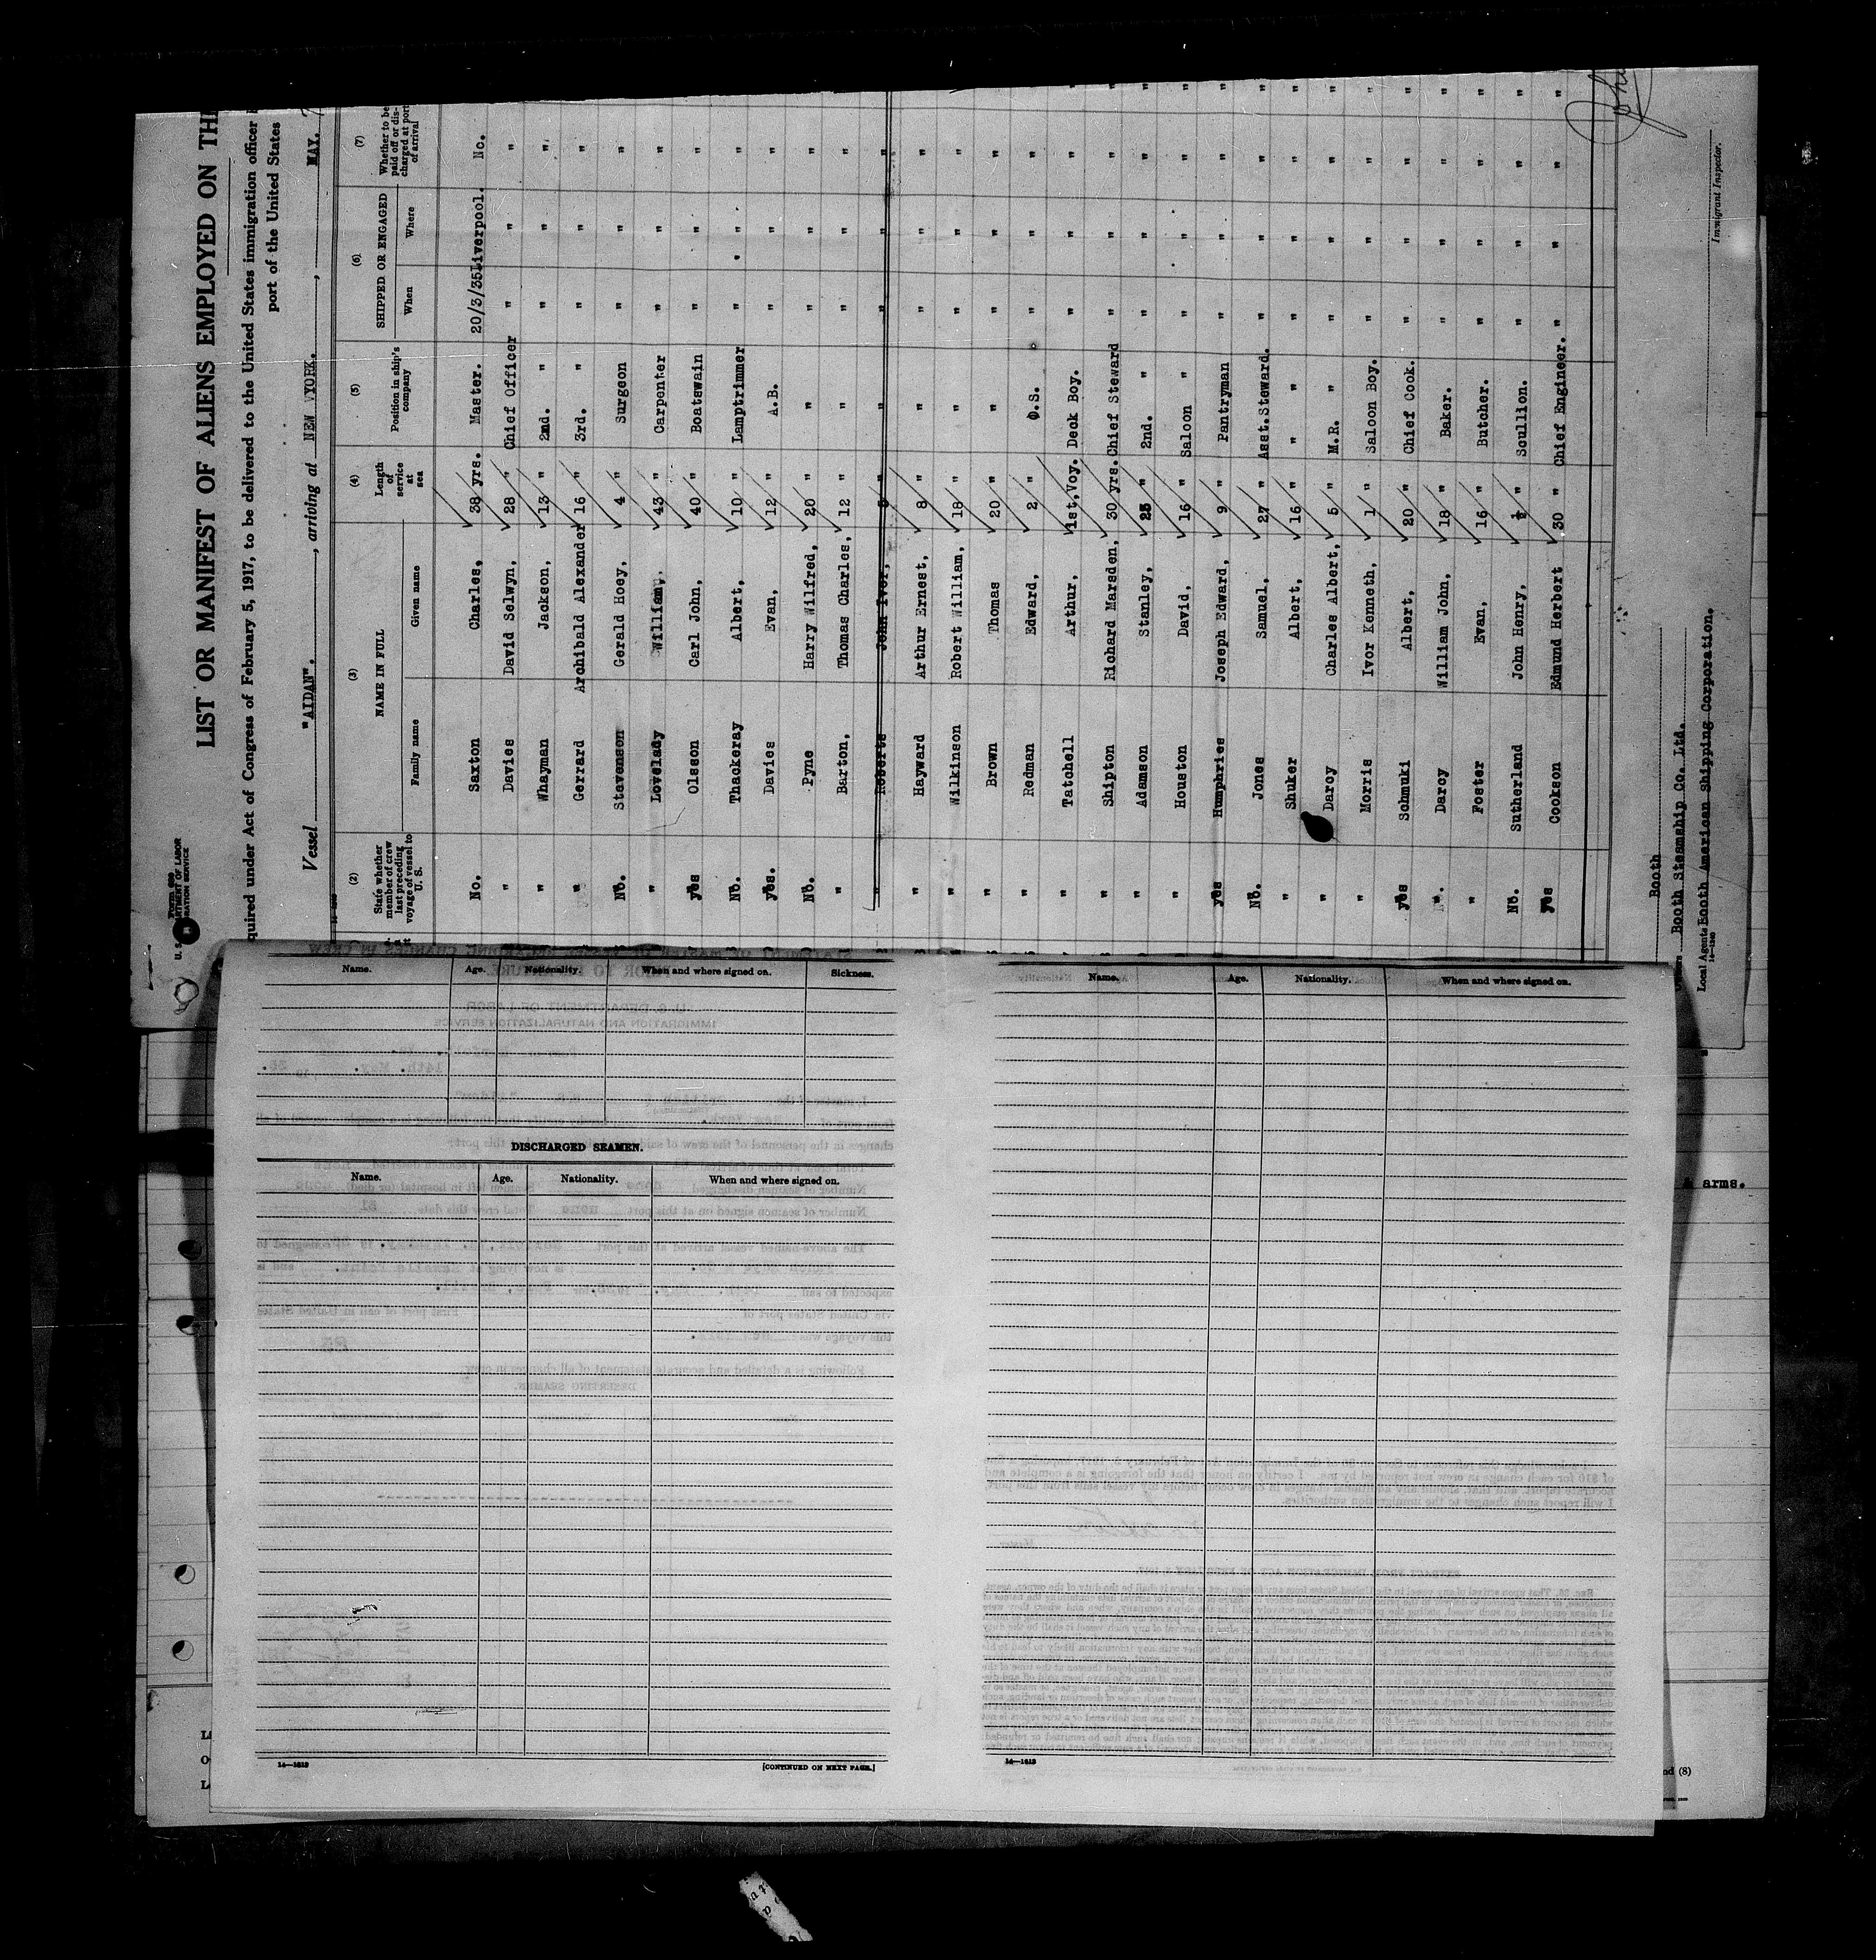 Form 689
U. S. DEPARTMENT OF LABOR
IMMIGRATION SERVICE
LIST OR MANIFEST OF ALIENS EMPLOYED ON THE
quired under Act of Congress of February 5, 1917, to be delivered to the United States immigration officer
port of the United States
Vessel "AIDAN". , arriving at NEW YORK. , MAY.
(2) (3) (4) (5) (6) (7)
State whether member of crew last preceding voyage of vessel to U. S. NAME IN FULL Length of service at sea Position in ship's company SHIPPED OR ENGAGED Whether to be paid off or discharged at port of arrival
Family name Given name When Where
No. Saxton Charles, 38 yrs. Master. 20/3/35 Liverpool. No.
" Davies David Selwyn, 28 " Chief Officer " " "
" Whayman Jackson, 13 " 2nd. " " " "
" Gerrard Archibald Alexander 16 " 3rd. " " " "
No. Stevenson Gerald Hoey, 4 " Surgeon " " "
" Lovelady William, 43 " Carpenter " " "
yes Olsson Carl John, 40 " Boatswain " " "
No. Thackeray Albert, 10 " Lamptrimmer " " "
yes. Davies Evan, 12 " A.B. " " "
No. Pyne Harry Wilfred, 20 " " " " "
" Barton, Thomas Charles, 12 " " " " "
" Roberts John Ivor, " " " " "
" Hayward Arthur Ernest, 8 " " " " "
" Wilkinson Robert William, 18 " " " " "
" Brown Thomas 20 " " " " "
" Redman Edward, 2 " O.S. " " "
" Tatchell Arthur, 1st. Voy. Deck Boy. " " "
" Shipton Richard Marsden, 30 yrs. Chief Steward " " "
" Adamson Stanley, 25 " 2nd. " " " "
" Houston David, 16 " Saloon " " " "
yes Humphries Joseph Edward, 9 " Pantryman " " "
No. Jones Samuel, 27 " Asst. Steward. " " "
" Shuker Albert, 16 " " " " " "
" Darcy Charles Albert, 5 " M.R. " " " "
" Morris Ivor Kenneth, 1 " Saloon Boy. " " "
yes Schmuki Albert, 20 " Chief Cook. " " "
". Darcy William John, 18 " Baker. " " "
" Foster Evan, 16 " Butcher. " " "
No. Sutherland John Henry, ½ " Scullion. " " "
yes Cookson Edmund Herbert 30 " Chief Engineer. " " "
Booth
Booth Steamship Co. Ltd.
Local Agents Booth American Shipping Corporation.
14—1240
Immigrant Inspector.
Name. Age. Nationality. When and where signed on. Sickness.
DISCHARGED SEAMEN.
Name. Age. Nationality. When and where signed on.
14—1613 [CONTINUED ON NEXT PAGE.]
Name. Age. Nationality. When and where signed on.
14—1613
arms.
nd (8)